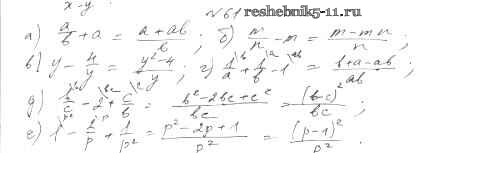 x-y.
№61 reshebnik5-11.ru
а) a/b + a = (a + ab)/b ; б) m/n - m = (m - mn)/n ;
в) y - 4/y = (y² - 4)/y ; г) 1/a + 1/b - 1 = (b + a - ab)/ab ;
д) b/c - 2 + c/b = (b² - 2bc + c²)/bc = (b-c)²/bc ;
е) 1 - 2/p + 1/p² = (p² - 2p + 1)/p² = (p - 1)²/p² .